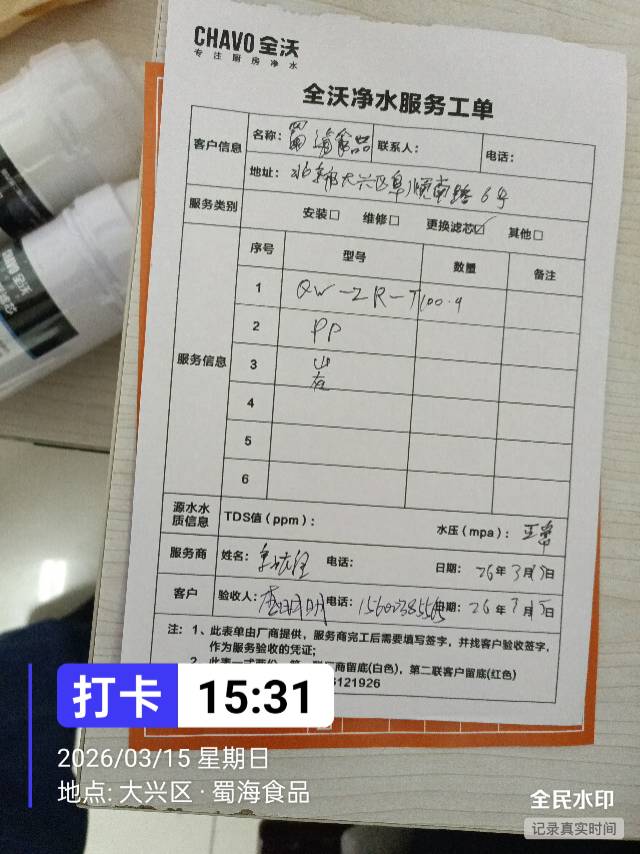 CHAVO 全沃
专注厨房净水
全沃净水服务工单
客户信息 名称：蜀海食品 联系人： 电话：
地址：北京市大兴区阜顺南路6号
服务类别 安装□ 维修□ 更换滤芯☑ 其他□
服务信息 序号 型号 数量 备注
1 QW-ZR-T100.9
2 PP
3
4
5
6
源水水质信息 TDS值（ppm）： 水压（mpa）：正常
服务商 姓名： 电话： 日期：26年3月15日
客户 验收人： 电话： 日期：26年3月15日
注：1、此表单由厂商提供，服务商完工后需要填写签字，并找客户验收签字，
作为服务验收的凭证；
2、此表一式两份，第一联厂商留底(白色)，第二联客户留底(红色)
121926
CHAVO 全沃
滤芯
打卡 15:31
2026/03/15 星期日
地点: 大兴区 · 蜀海食品
全民水印
记录真实时间